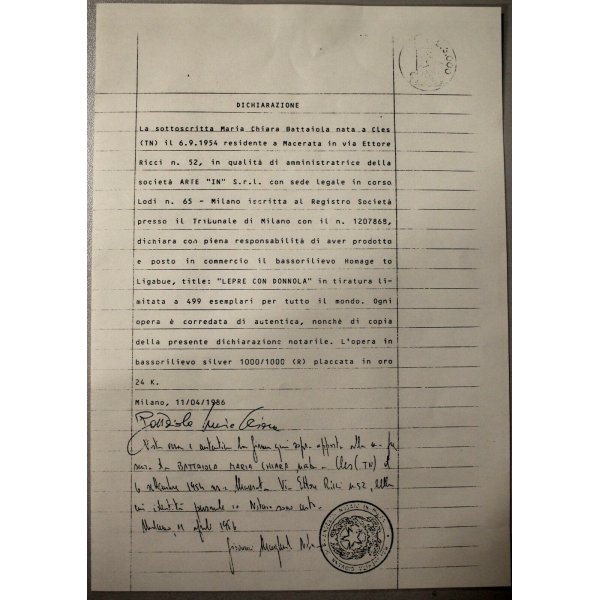 DICHIARAZIONE
La sottoscritta Maria Chiara Battaiola nata a Cles
(TN) il 6.9.1954 residente a Macerata in via Ettore
Ricci n. 52, in qualità di amministratrice della
società ARTE "IN" S.r.l. con sede legale in corso
Lodi n. 65 - Milano iscritta al Registro Società
presso il Tribunale di Milano con il n. 1207868,
dichiara con piena responsabilità di aver prodotto
e posto in commercio il bassorilievo Homage to
Ligabue, title: "LEPRE CON DONNOLA" in tiratura li-
mitata a 499 esemplari per tutto il mondo. Ogni
opera è corredata di autentica, nonchè di copia
della presente dichiarazione notarile. L'opera in
bassorilievo silver 1000/1000 (R) placcata in oro
24 K.
Milano, 11/04/1986
Battaiola Maria Chiara
autentica la firma qui sopra apposta alla
BATTAIOLA MARIA CHIARA nata a Cles (TN) il
6 settembre 1954 Macerata Via Ettore Ricci n. 52, della
cui identità personale io Notaio sono certo.
11 aprile 1986